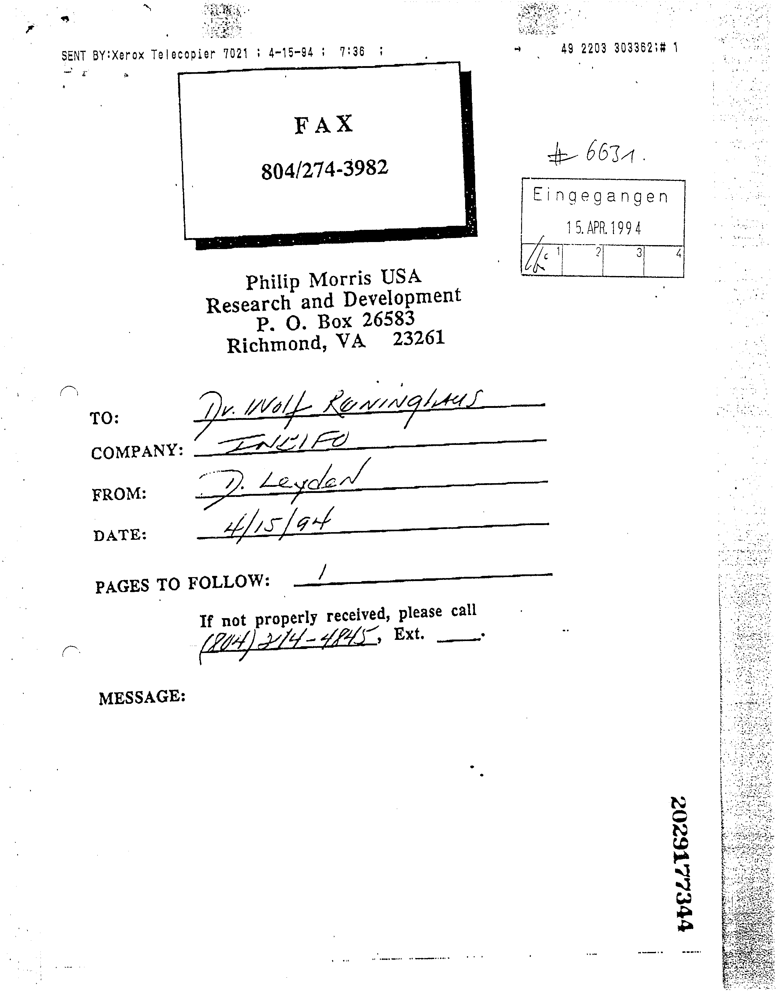 SENT BY:Xerox Telecopier 7021 ; 4-15-94 ; 7:36 ; → 49 2203 303362;# 1
FAX
804/274-3982
# 6631.
Eingegangen
15. APR. 1994
1 2 3 4
Philip Morris USA
Research and Development
P. O. Box 26583
Richmond, VA 23261
TO: Dr. Wolf Reininghaus
COMPANY: INBIFO
FROM: D. Leyden
DATE: 4/15/94
PAGES TO FOLLOW: 1
If not properly received, please call
(804) 274-4845, Ext. ____.
MESSAGE:
2029177344